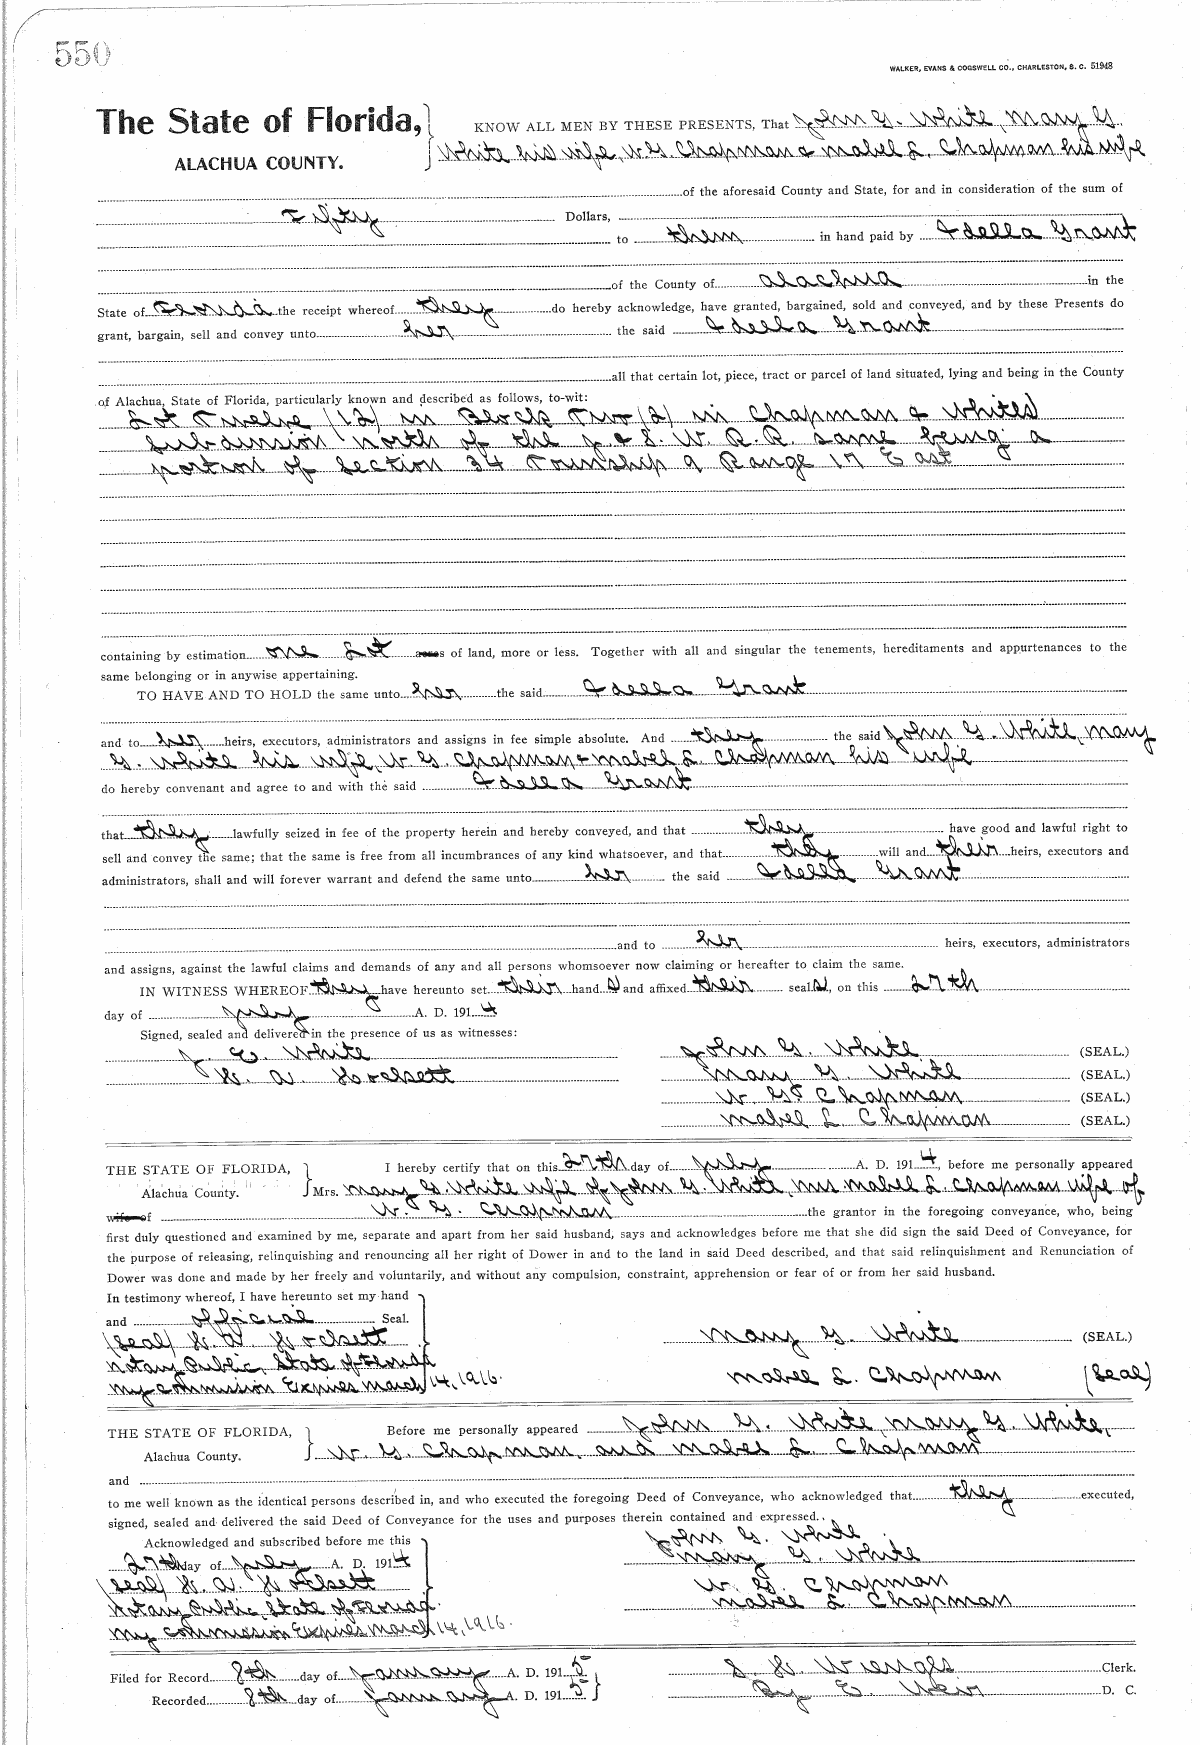 550
WALKER, EVANS & COGSWELL CO., CHARLESTON, S. C. 51948
The State of Florida,
ALACHUA COUNTY.
KNOW ALL MEN BY THESE PRESENTS, That John G. White, Mary G.
White his wife, W G Chapman & Mabel L. Chapman his wife
of the aforesaid County and State, for and in consideration of the sum of
Fifty Dollars,
to them in hand paid by Idella Grant
of the County of Alachua in the
State of Florida the receipt whereof they do hereby acknowledge, have granted, bargained, sold and conveyed, and by these Presents do
grant, bargain, sell and convey unto her the said Idella Grant
all that certain lot, piece, tract or parcel of land situated, lying and being in the County
of Alachua, State of Florida, particularly known and described as follows, to-wit:
Lot Twelve (12) in Block Two (2) in Chapman & Whites
Subdivision north of the J & S. W. R. R. same being a
portion of Section 34 Township 9 Range 17 East
containing by estimation one Lot acres of land, more or less. Together with all and singular the tenements, hereditaments and appurtenances to the
same belonging or in anywise appertaining.
TO HAVE AND TO HOLD the same unto her the said Idella Grant
and to her heirs, executors, administrators and assigns in fee simple absolute. And they the said John G. White, Mary
G. White his wife, W G. Chapman & Mabel L. Chapman his wife
do hereby convenant and agree to and with the said Idella Grant
that they lawfully seized in fee of the property herein and hereby conveyed, and that they have good and lawful right to
sell and convey the same; that the same is free from all incumbrances of any kind whatsoever, and that they will and their heirs, executors and
administrators, shall and will forever warrant and defend the same unto her the said Idella Grant
and to her heirs, executors, administrators
and assigns, against the lawful claims and demands of any and all persons whomsoever now claiming or hereafter to claim the same.
IN WITNESS WHEREOF they have hereunto set their hand s and affixed their seal s, on this 27th
day of July A. D. 191 4
Signed, sealed and delivered in the presence of us as witnesses:
J. E. White John G. White (SEAL.)
Mary G. White (SEAL.)
W. G. Chapman (SEAL.)
Mabel L. Chapman (SEAL.)
THE STATE OF FLORIDA,
Alachua County.
I hereby certify that on this 27th day of July A. D. 191 4, before me personally appeared
Mrs. Mary G. White wife of John G. White, Mrs Mabel L. Chapman wife of
wife of W. G. Chapman the grantor in the foregoing conveyance, who, being
first duly questioned and examined by me, separate and apart from her said husband, says and acknowledges before me that she did sign the said Deed of Conveyance, for
the purpose of releasing, relinquishing and renouncing all her right of Dower in and to the land in said Deed described, and that said relinquishment and Renunciation of
Dower was done and made by her freely and voluntarily, and without any compulsion, constraint, apprehension or fear of or from her said husband.
In testimony whereof, I have hereunto set my hand
and official Seal.
(Seal)
Mary G. White (SEAL.)
Notary Public, State of Florida
My Commission Expires March 14, 1916.
Mabel L. Chapman (Seal)
THE STATE OF FLORIDA,
Alachua County.
Before me personally appeared John G. White, Mary G. White,
W. G. Chapman, and Mabel L. Chapman
and
to me well known as the identical persons described in, and who executed the foregoing Deed of Conveyance, who acknowledged that they executed,
signed, sealed and delivered the said Deed of Conveyance for the uses and purposes therein contained and expressed.
Acknowledged and subscribed before me this
27th day of July A. D. 191 4
(Seal)
Notary Public, State of Florida.
My Commission Expires March 14, 1916.
John G. White
Mary G. White
W. G. Chapman
Mabel L. Chapman
Filed for Record 8th day of January A. D. 191 5
S. H. Wienges Clerk.
Recorded 8th day of January A. D. 191 5
By E. Weir D. C.